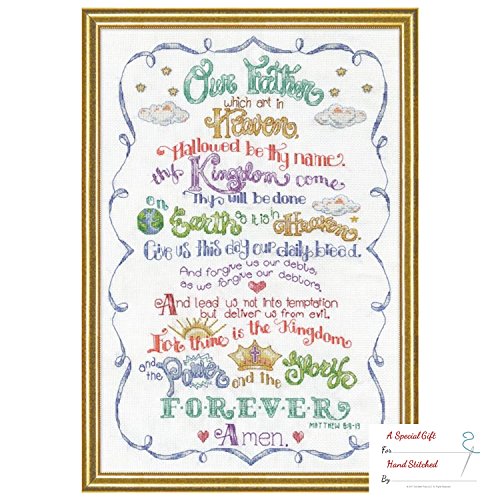 Our Father
which art in
Heaven.
Hallowed be thy name.
thy Kingdom come
Thy will be done
on Earth as it is in Heaven.
Give us this day our daily bread.
And forgive us our debts,
as we forgive our debtors.
And lead us not into temptation
but deliver us from evil.
For thine is the Kingdom
and the Power and the Glory
FOREVER
MATTHEW 6:9-13
Amen.
A Special Gift
For
Hand Stitched
By